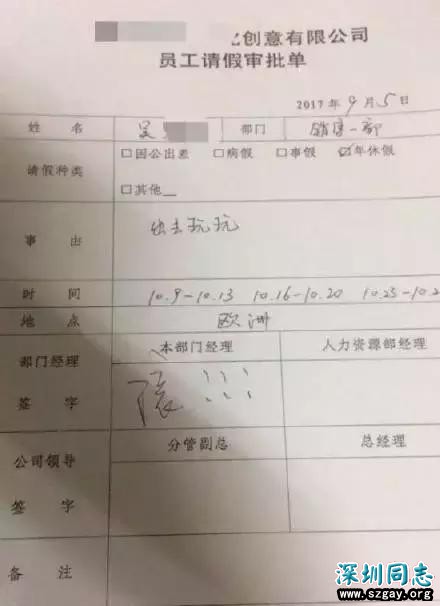 创意有限公司
员工请假审批单
2017年9月5日
姓 名 吴 部门 销售一部
请假种类 □国公出差 □病假 □事假 ☑年休假
□其他__
事 由 出去玩玩
时 间 10.9-10.13 10.16-10.20 10.23-10.2
地 点 欧洲
部门经理 本部门经理 人力资源部经理
签 字 !!!
公司领导 分管副总 总经理
签 字
备 注
深圳同志
www.szgay.org